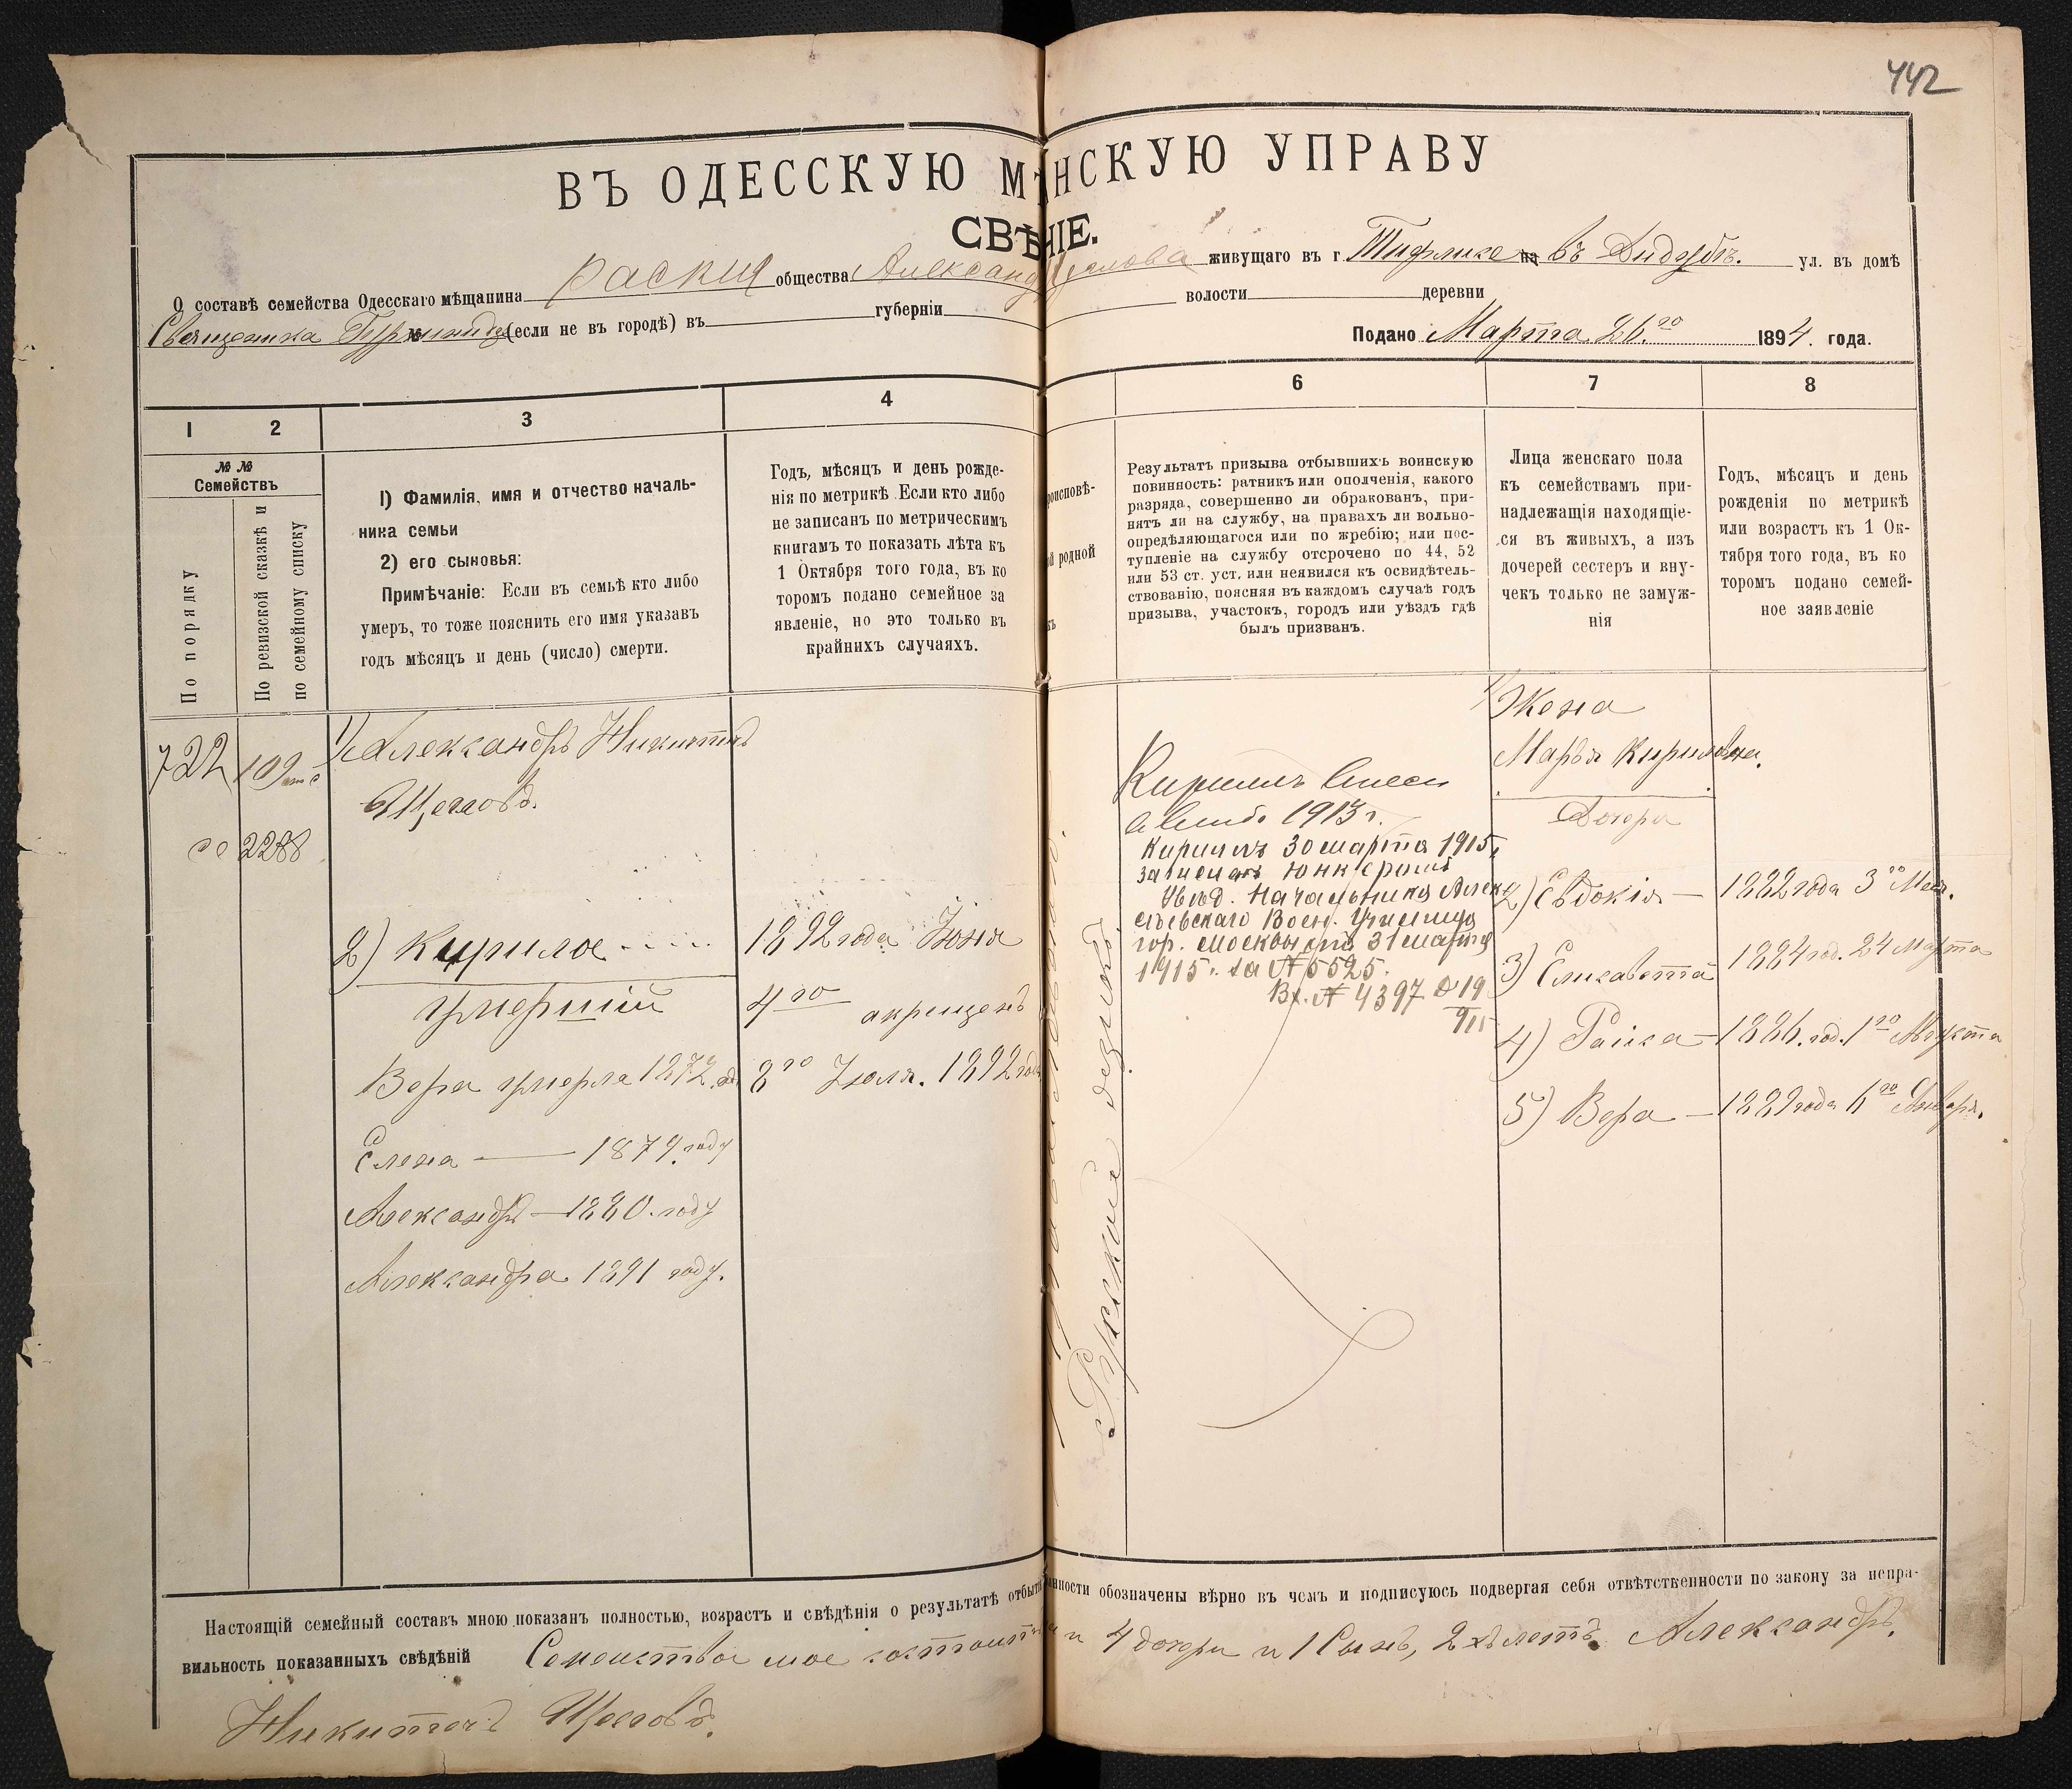 442
ВЪ ОДЕССКУЮ МѢ НСКУЮ УПРАВУ
СВѢ НІЕ.
О составѣ семейства Одесскаго мѣщанина общества Александ живущаго въ г. Тифлисе на въ Дидубѣ. ул. въ домѣ
Священика № (если не въ городѣ) въ губерніи волости деревни
Подано Марта 26.го 1894. года.
1 2 3 4 6 7 8
№ №
Семействъ
По порядку
По ревизской сказкѣ и
по семейному списку
1) Фамилія, имя и отчество началь-
ника семьи
2) его сыновья:
Примѣчаніе: Если въ семьѣ кто либо
умеръ, то тоже пояснить его имя указавъ
годъ мѣсяцъ и день (число) смерти.
Годъ, мѣсяцъ и день рожде-
нія по метрикѣ. Если кто либо
не записанъ по метрическимъ
книгамъ то показать лѣта къ
1 Октября того года, въ ко
торомъ подано семейное за
явленіе, но это только въ
крайнихъ случаяхъ.
роисповѣ-
ой родной
къ
Результатъ призыва отбывшихъ воинскую
повинность: ратникъ или ополченія, какого
разряда, совершенно ли обракованъ, при-
нятъ ли на службу, на правахъ ли вольно-
опредѣляющагося или по жребію; или пос-
тупленіе на службу отсрочено по 44, 52
или 53 ст. уст. или неявился къ освидѣтель-
ствованію, поясняя въ каждомъ случаѣ годъ
призыва, участокъ, городъ или уѣздъ гдѣ
былъ призванъ.
Лица женскаго пола
къ семействамъ при-
надлежащія находящіе-
ся въ живыхъ, а изъ
дочерей сестеръ и вну-
чекъ только не замуж-
нія
Годъ, мѣсяцъ и день
рожденія по метрикѣ
или возрастъ къ 1 Ок-
тября того года, въ ко
торомъ подано семей-
ное заявленіе
722 109
2288
1) Александръ Никитинъ
Щегловъ.
2) Кирилое
1892 года Юня
4го акрещенъ
8го Юля. 1892 года
умершій
Вера умерла 1872. год
Елена — 1879. году
Александръ — 1880. году
Александра 1891 году.
Руской
Кириллъ внесен
1913 г.
Кириллъ 30 марта 1915 г.
записанъ юнкеромъ
Увѣд. Начальника Алек
сѣевскаго Воен. Училища
гор. Москвы отъ 31 марта
1915 г. за № 5525.
Вх. № 4397. 19
915
1) Жена
Марья Кириловна.
Дочери
2) Евдокія — 1882 года 3го Мая.
3) Елисавета 1884 год. 24 Марта
4) Раиса — 1886. год. 1го Августа
5) Вера — 1889 года 6го Января.
Настоящій семейный составъ мною показанъ полностью, возрастъ и свѣдѣнія о результатѣ отбыті нности обозначены вѣрно въ чемъ и подписуюсь подвергая себя отвѣтственности по закону за непра-
вильность показанныхъ свѣдѣній Семейство мое состоит и 4 дочери и 1 Сынъ, 2 хъ летъ. Александръ.
Никитичъ Щегловъ.